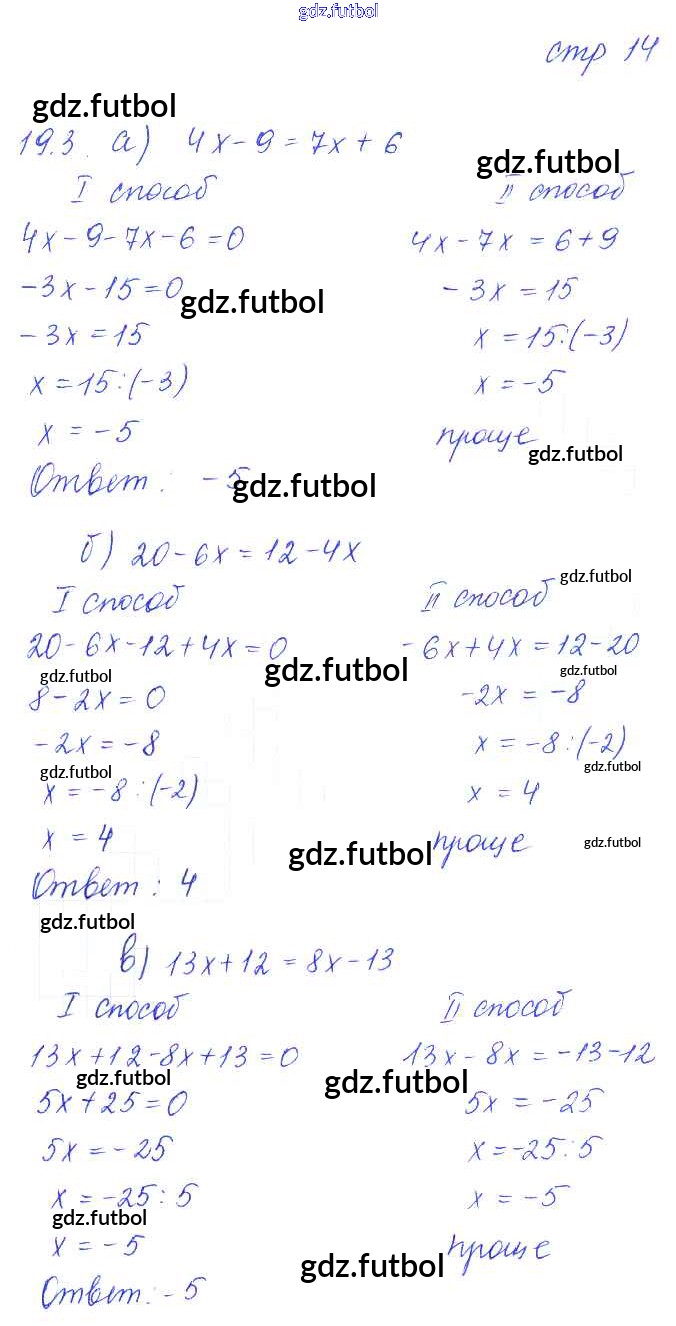 gdz.futbol
стр 14
gdz.futbol
19.3. а) 4x - 9 = 7x + 6
gdz.futbol
I способ
4x - 9 - 7x - 6 = 0
-3x - 15 = 0
gdz.futbol
-3x = 15
x = 15 : (-3)
x = -5
Ответ: -5
gdz.futbol
II способ
4x - 7x = 6 + 9
-3x = 15
x = 15 : (-3)
x = -5
проще
gdz.futbol
б) 20 - 6x = 12 - 4x
I способ
20 - 6x - 12 + 4x = 0
gdz.futbol
gdz.futbol
8 - 2x = 0
-2x = -8
gdz.futbol
x = -8 : (-2)
x = 4
Ответ: 4
gdz.futbol
gdz.futbol
II способ
-6x + 4x = 12 - 20
gdz.futbol
-2x = -8
x = -8 : (-2)
gdz.futbol
x = 4
gdz.futbol
проще
gdz.futbol
в) 13x + 12 = 8x - 13
I способ
13x + 12 - 8x + 13 = 0
gdz.futbol
5x + 25 = 0
5x = -25
x = -25 : 5
gdz.futbol
x = -5
Ответ: -5
II способ
13x - 8x = -13 - 12
gdz.futbol
5x = -25
x = -25 : 5
x = -5
проще
gdz.futbol